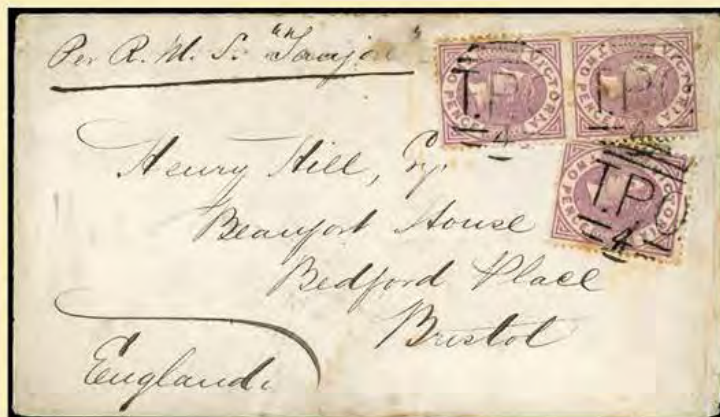 Per R. M. S. "Tanjore"
VICTORIA
TWO PENCE
VICTORIA
TWO PENCE
T.P.
4
T.P.
4
VICTORIA
TWO PENCE
T.P.
4
Henry Hill, Esq
Beaufort House
Bedford Place
Bristol
England.